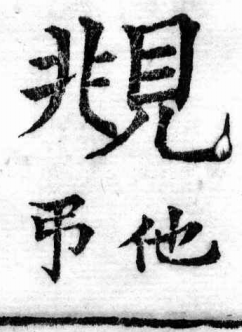 覜
他弔